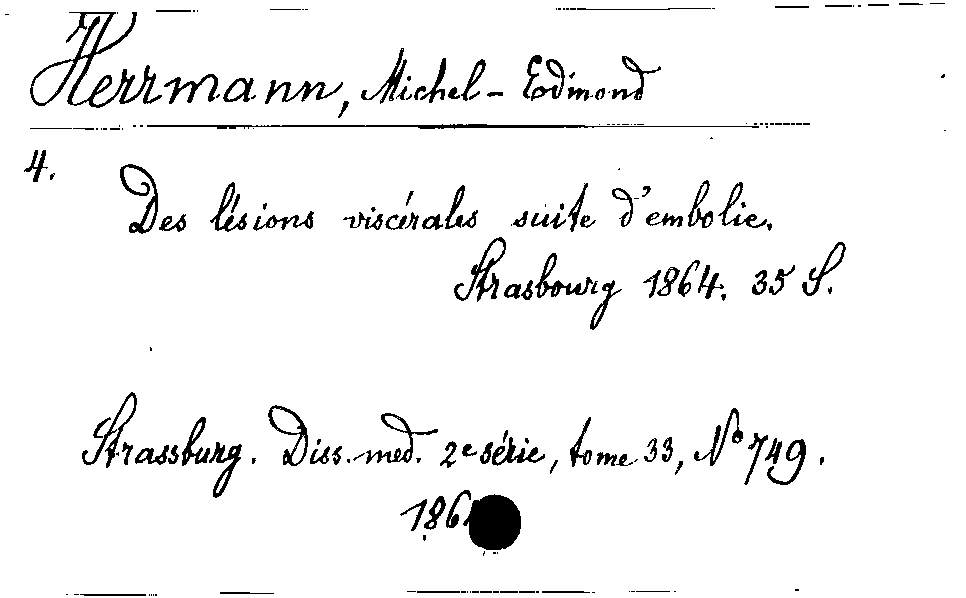 Herrmann, Michel-Edmond
4.
Des lésions viscérales suite d'embolie.
Strasbourg 1864. 35 S.
Strassburg. Diss. med. 2e série, tome 33, No 749.
186